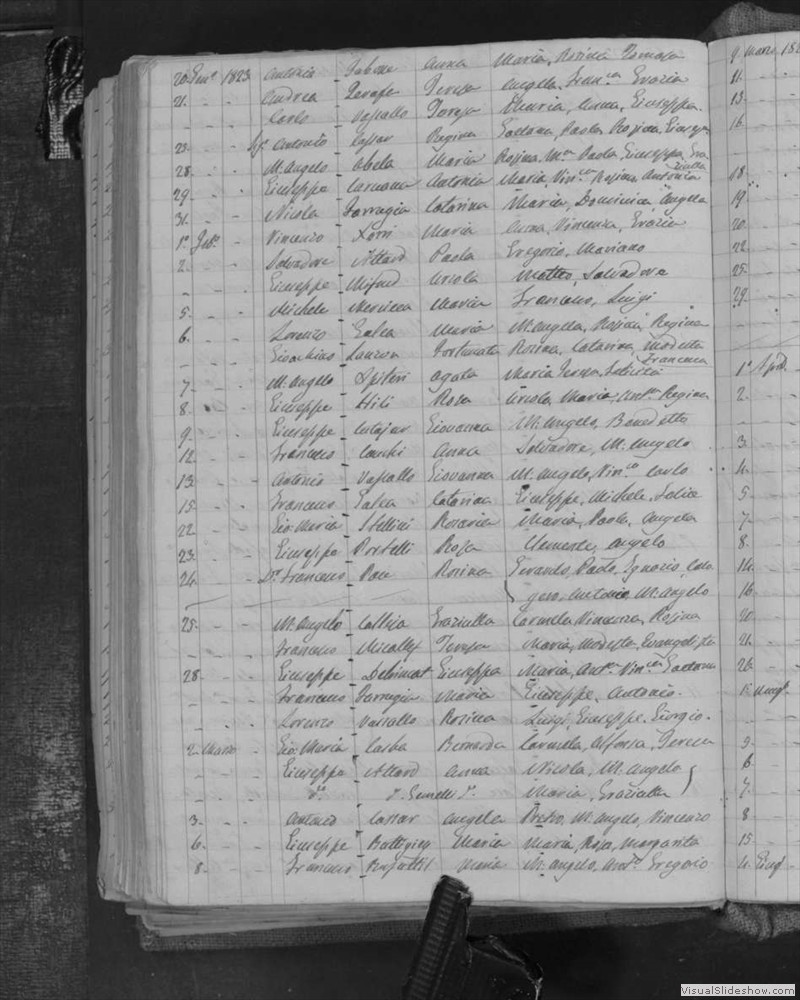 20. Gen.º 1823 Antonio Tabone Anna Maria, Rosina Tomasa
21. Andrea Teresa Angella, Fran.ca Grazia
Carlo Vassallo Teresa Maria, Anna, Giuseppa.
23. Antonio Cassar Regina Gaetana, Paola, Rosina, Giusep.a
28. M. Angelo Abela Maria Rosina, M.a Paola, Giuseppa, Gra
ziulla
29. Giuseppe Caruana Antonia Maria, Vin.ca Rosina, Antonia
31. Nicola Farrugia Catarina Maria, Dominica, Angela
1.º Feb.º Vincenzo Maria Anna, Vincenza, Grazia
2. Salvadore Attard Paola Gregorio, Mariano
Giuseppe Mifsud Ursola Matteo, Salvadore
5. Michele Mercieca Maria Francesco, Luigi
6. Lorenzo Galea Maria M. Angella, Rosina, Regina
Gioachino Lauron Fortunata Rosina, Catarina, Modesta
Francesca
7. M. Angelo Spiteri Agata Maria Teresa,
8. Giuseppe Hili Rosa Ursola, Maria, Ant.a Regina
9. Giuseppe Cutajar Giovanna M. Angelo, Benedetto
12. Francesco Anna Salvadore, M. Angelo
13. Antonio Vassallo Giovanna M. Angelo, Vin.co Carlo
15. Francesco Galea Catarina Giuseppe, Michele, Felice
22. Gio. Maria Stellini Rosaria Maria, Paola, Angela
23. Giuseppe Portelli Rosa Clemente, Angelo
24. Dr. Francesco Pace Rosina Gerardo, Paolo, Ignazio, Calo
gero, Antonio, M. Angelo
25. M. Angelo Calleja Graziulla Carmela, Vincenza, Rosina
Francesco Micallef Teresa Maria, Modesta, Evangelista
28. Giuseppe Debrincat Giuseppa Maria, Ant.a Vin.ca Gaetana
Francesco Farrugia Maria Giuseppe, Antonio.
Lorenzo Vassallo Rosina Luigi, Giuseppe, Giorgio.
2. Marzo Gio. Maria Bernarda Carmela, Alfonsa, Teresa
Giuseppe Attard Anna Nicola, M. Angelo
d.º d. Gemelli d. Maria, Graziulla
3. Antonio Cassar Angela Pietro, M. Angelo, Vincenzo
6. Giuseppe Buttigieg Maria Maria, Rosa, Margarita
8. Francesco Busuttil Maria M. Angelo, Ant.o Gregorio
9. Marzo, 182
11.
13.
16.
18.
19.
20.
22.
25.
29.
1.º Aprl.
2.
3.
4.
5.
7.
8.
14.
16.
20.
21.
26.
1.º Magg.
3.
6.
7.
8.
15.
4. Giug.
VisualSlideshow.com